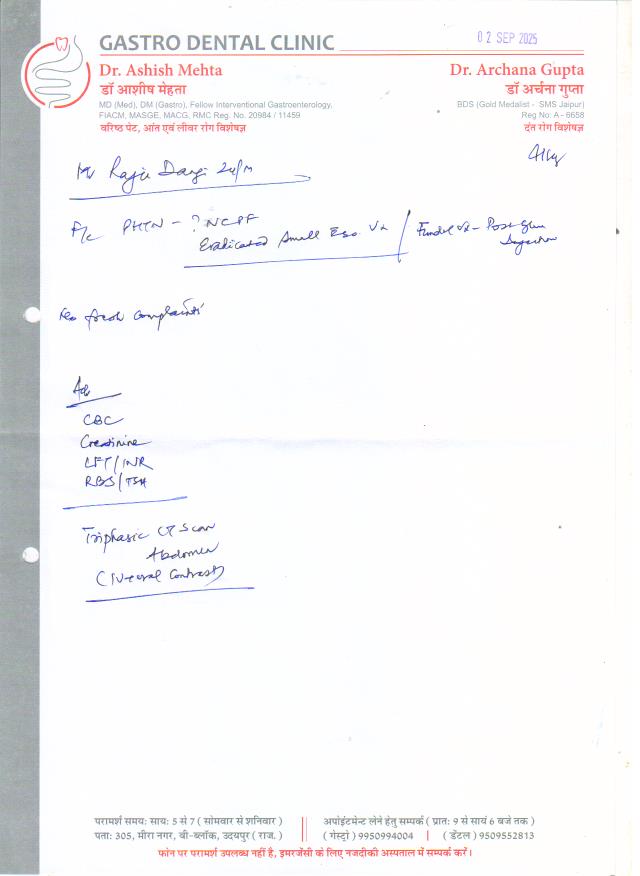 GASTRO DENTAL CLINIC
02 SEP 2025
Dr. Ashish Mehta
डॉ आशीष मेहता
MD (Med), DM (Gastro), Fellow Interventional Gastroenterology,
FIACM, MASGE, MACG, RMC Reg. No. 20984 / 11459
वरिष्ठ पेट, आंत एवं लीवर रोग विशेषज्ञ
Dr. Archana Gupta
डॉ अर्चना गुप्ता
BDS (Gold Medalist - SMS Jaipur)
Reg No: A - 6658
दंत रोग विशेषज्ञ
Mr Raju Dangi 24/M
F/c PHTN - ? NCPF
Eradicated Small Eso. Vx / Fundal Vx - Post Glue
No fresh complaints
Adv
CBC
Creatinine
LFT/INR
RBS/TSH
Triphasic CT Scan
Abdomen
(IV+oral Contrast)
परामर्श समय: सायं: 5 से 7 ( सोमवार से शनिवार )
पता: 305, मीरा नगर, बी-ब्लॉक, उदयपुर ( राज. )
अपोइंटमेन्ट लेने हेतु सम्पर्क ( प्रात: 9 से सायं 6 बजे तक )
( गेस्ट्रो ) 9950994004 | ( डेंटल ) 9509552813
फोन पर परामर्श उपलब्ध नहीं है, इमरजेंसी के लिए नजदीकी अस्पताल में सम्पर्क करें।